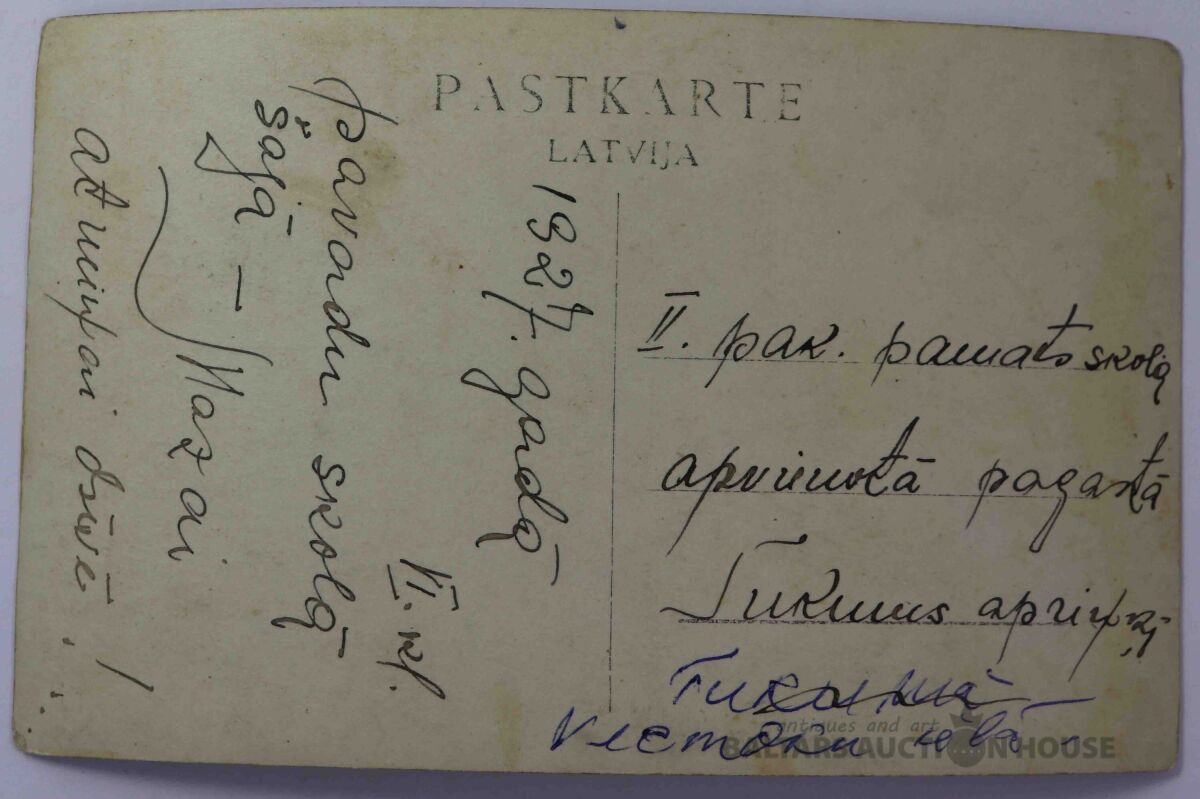 PASTKARTE
LATVIJA
1927. gadā
VI. kl.
pavadu skolā
šajā –
Mazai
atmiņai dzīvē!
II. pak. pamatskolā
apvienotā pagastā
Tukums apriņķī
Tukumā
antiques and art
BALTARS AUCTION HOUSE